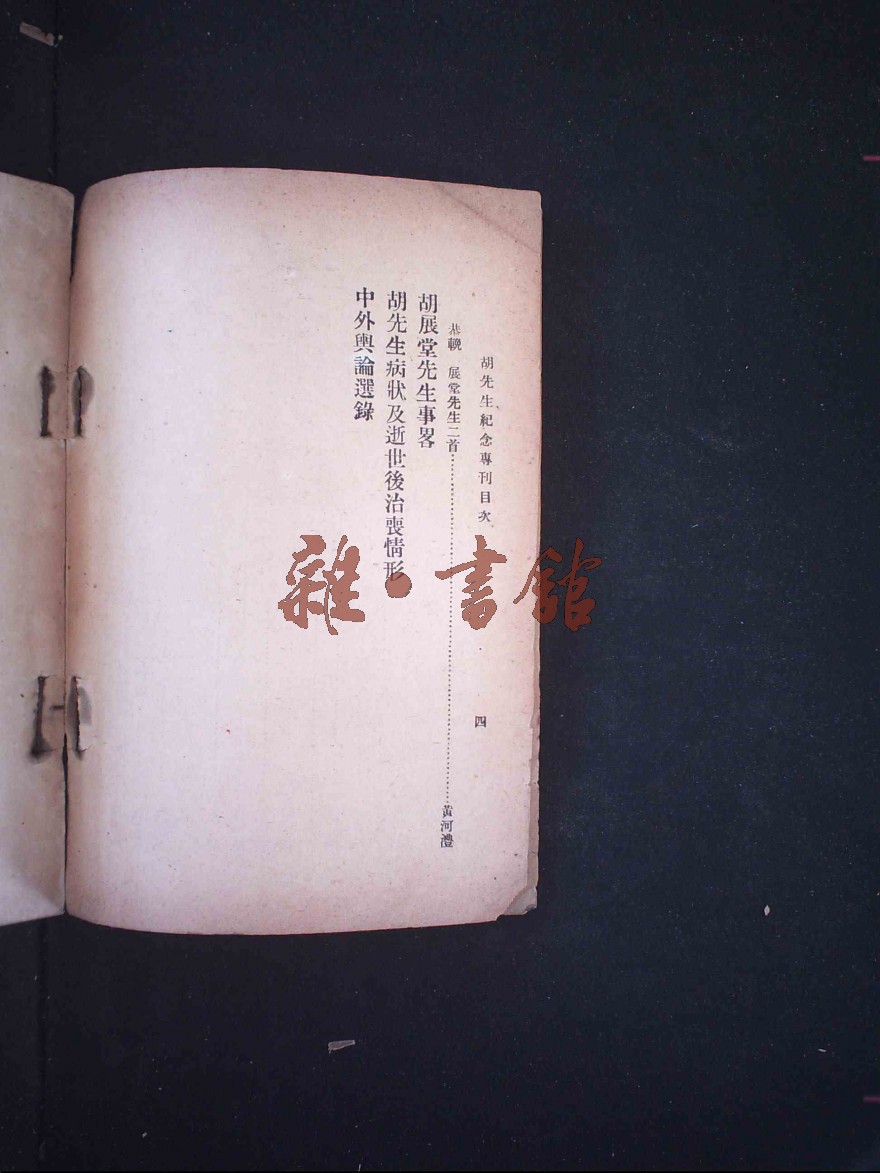 胡先生紀念專刊目次 四
恭輓 展堂先生二首 黃河灃
胡展堂先生事畧
胡先生病狀及逝世後治喪情形
中外輿論選錄
雜·書館